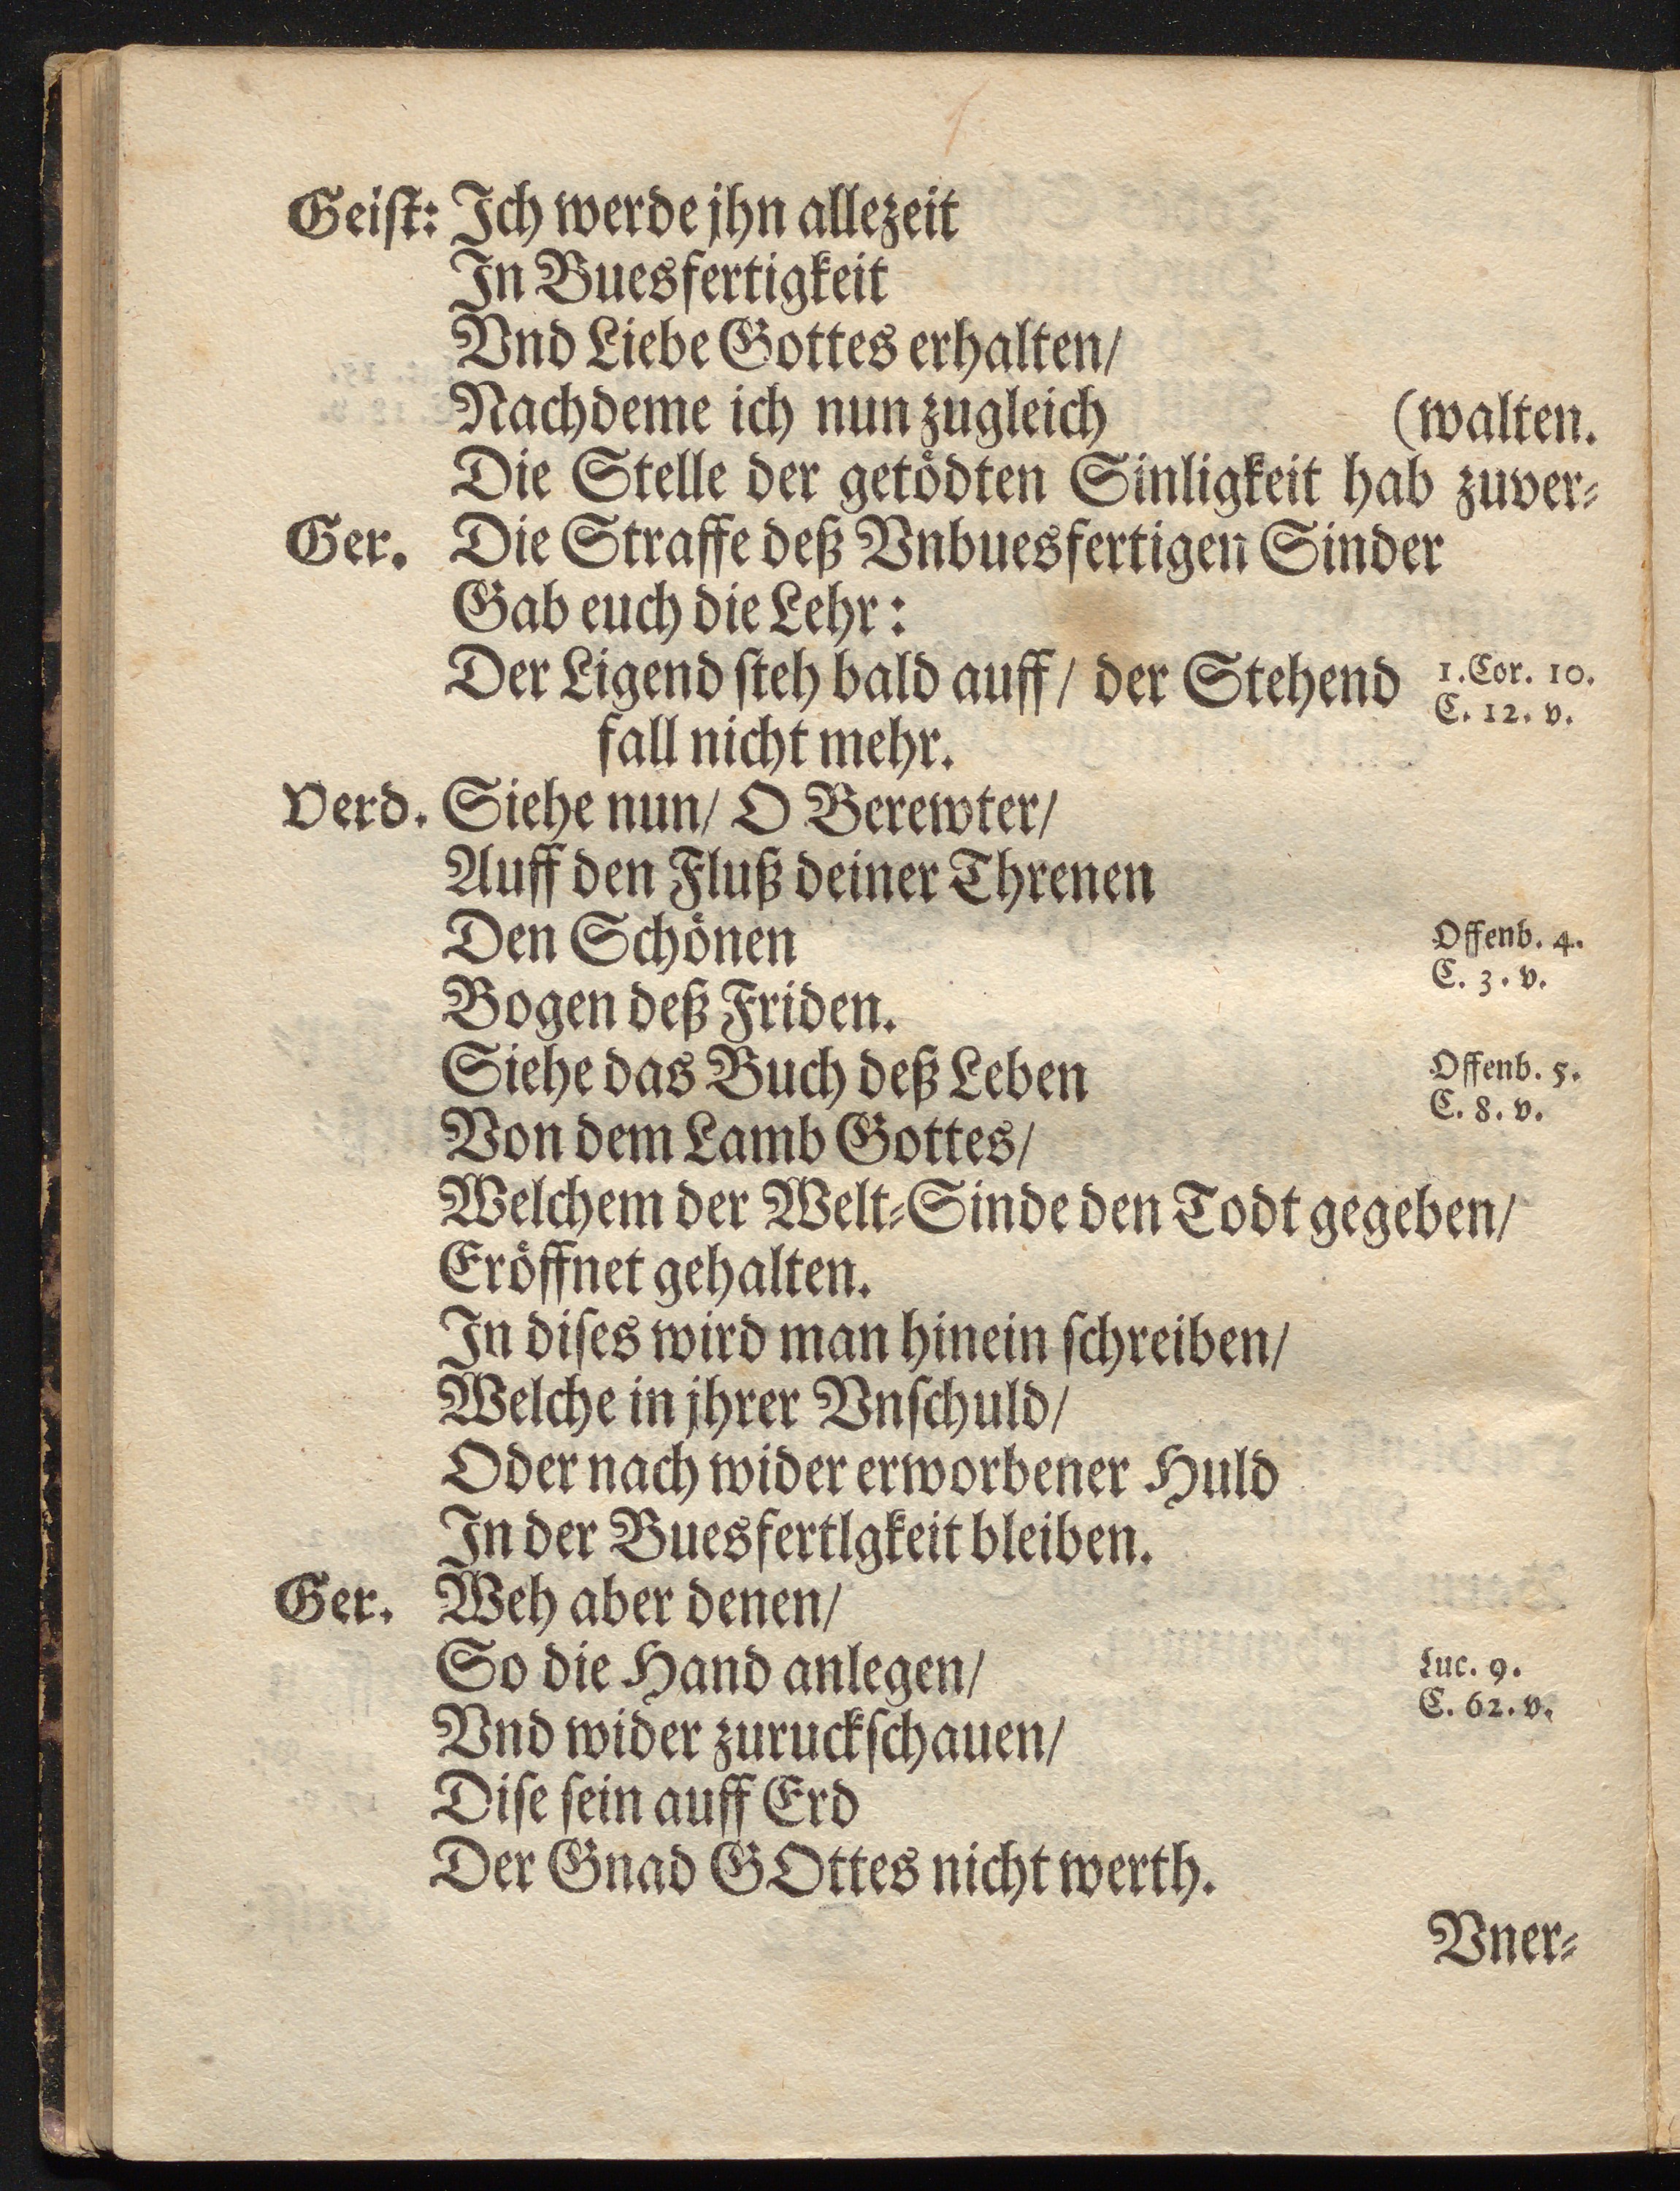 Geiſt: Ich werde jhn allezeit
In Buesfertigkeit
Vnd Liebe Gottes erhalten/
Nachdeme ich nun zugleich (walten.
Die Stelle der getödten Sinligkeit hab zuver⸗
Ger. Die Straffe deß Vnbuesfertigen Sinder
Gab euch die Lehr:
Der Ligend ſteh bald auff/ der Stehend 1. Cor. 10.
C. 12. v.
fall nicht mehr.
Verd. Siehe nun/ O Berewter/
Auff den Fluß deiner Threnen
Den Schönen Offenb. 4.
C. 3. v.
Bogen deß Friden.
Siehe das Buch deß Leben Offenb. 5.
C. 8. v.
Von dem Lamb Gottes/
Welchem der Welt⸗Sinde den Todt gegeben/
Eröffnet gehalten.
In diſes wird man hinein ſchreiben/
Welche in jhrer Vnſchuld/
Oder nach wider erworbener Huld
In der Buesfertlgkeit bleiben.
Ger. Weh aber denen/
So die Hand anlegen/ Luc. 9.
C. 62. v.
Vnd wider zuruckſchauen/
Diſe ſein auff Erd
Der Gnad GOttes nicht werth.
Vner⸗